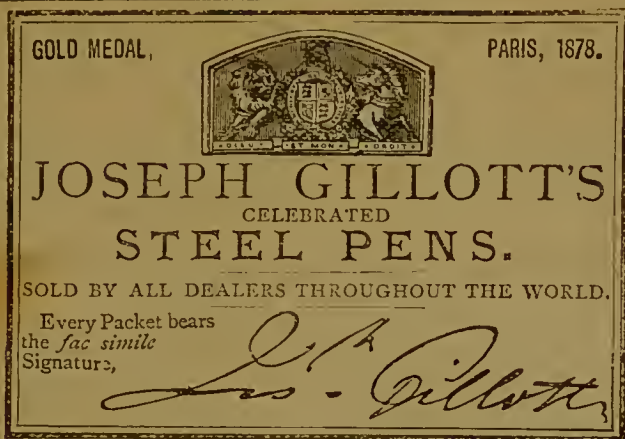 GOLD MEDAL,
PARIS, 1878.
DIEU ET MON DROIT
JOSEPH GILLOTT'S
CELEBRATED
STEEL PENS.
SOLD BY ALL DEALERS THROUGHOUT THE WORLD.
Every Packet bears
the fac simile
Signature,
Jos. Gillott